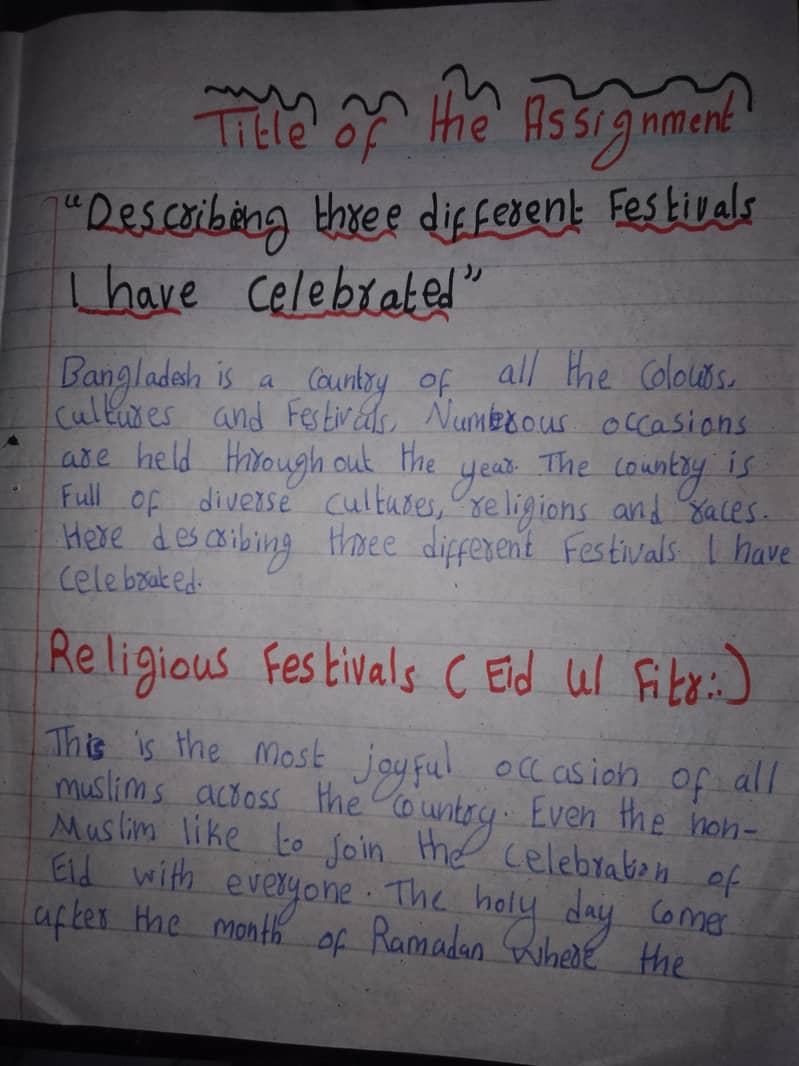 Title of the Assignment
"Describing three different Festivals
I have Celebrated"
Bangladesh is a Country of all the Colours,
Cultures and Festivals, Numerous occasions
are held throughout the year. The Country is
Full of diverse Cultures, religions and races.
Here describing three different Festivals I have
Celebrated.
Religious Festivals ( Eid Ul Fitr::)
This is the most joyful occasion of all
muslims across the Country. Even the non-
Muslim like to join the Celebration of
Eid with everyone. The holy day Comes
after the month of Ramadan Where the